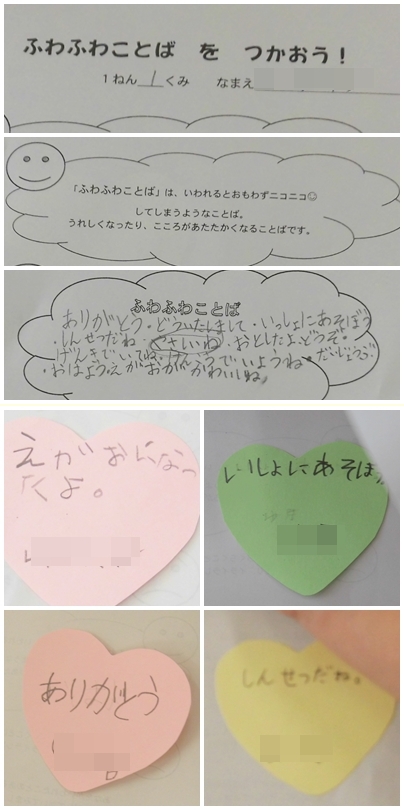 ふわふわことば を つかおう！
1ねん 1 くみ なまえ
「ふわふわことば」は、いわれるとおもわずニコニコ☺
してしまうようなことば。
うれしくなったり、こころがあたたかくなることばです。
ふわふわことば
ありがとう・どういたしまして・いっしょにあそぼう
・しんせつだね・やさしいね・おとしたよ、どうぞ。
げんきでいてね・けんこうでいようね・だいじょうぶ？
・おはよう・えがおがかわいいね。
えがおになっ
たよ。
いしょにあそぼ
ありがとう
しんせつだね。